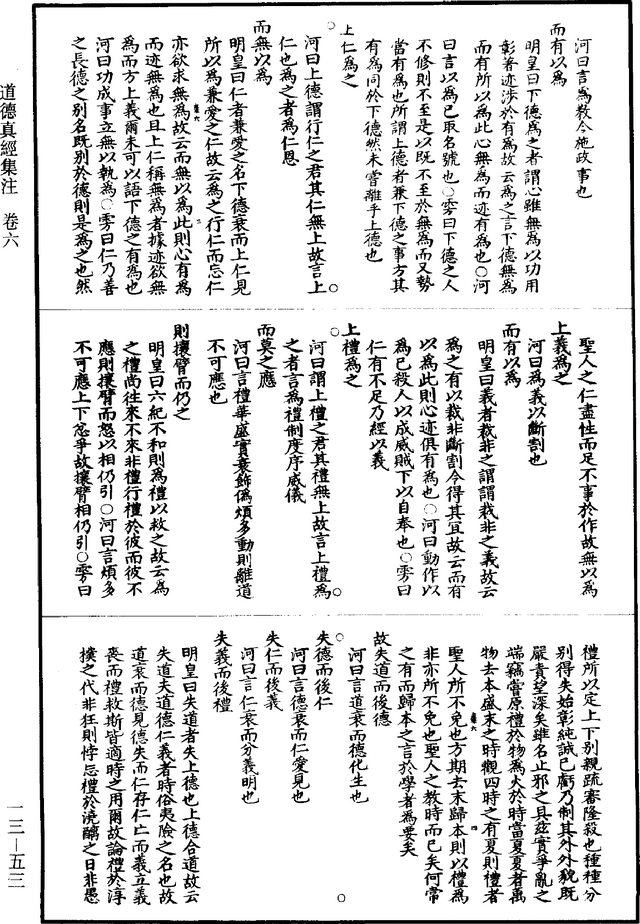 河曰言為教令施政事也
而有以為
明皇曰下德為之者謂心雖無為以功用
彰著迹涉於有為故云為之言下德無為
而有所以為此心無為而迹有為也○河
曰言以為己取名號也○雱曰下德之人
不修則不至是以既不至於無為而又勢
當有為也所謂上德者兼下德之事方其
有為同於下德然未嘗離乎上德也
上仁為之
河曰上德謂行仁之君其仁無上故言上
仁也為之者為仁恩
而無以為
明皇曰仁者兼愛之名下德衰而上仁見
所以為兼愛之仁故云為之行仁而忘仁
亦欲求無為故云而無以為此則心有為
而迹無為也且上仁稱無為者據迹欲無
為而方上義爾未可以語下德之有為也
河曰功成事立無以執為○雱曰仁乃善
之長德之別名既別於德則是為之也然
聖人之仁盡性而足不事於作故無以為
上義為之
河曰為義以斷割也
而有以為
明皇曰義者裁非之謂謂裁非之義故云
為之有以裁非斷割令得其宜故云而有
以為此則心迹俱有為也○河曰動作以
為己殺人以成威賊下以自奉也○雱曰
仁有不足乃經以義
上禮為之
河曰謂上禮之君其禮無上故言上禮為
之者言為禮制度序威儀
而莫之應
河曰言禮華盛實衰飾偽煩多動則離道
不可應也
則攘臂而仍之
明皇曰六紀不和則為禮以救之故云為
之禮尚往來不來非禮行禮於彼而彼不
應則攘臂而怒以相仍引○河曰言煩多
不可應上下忿爭故攘臂相仍引○雱曰
禮所以定上下別親疏審隆殺也種種分
別得失始彰純誠已虧乃制其外外貌既
嚴責望深矣雖名止邪之具茲實爭亂之
端竊嘗原禮於物為火於時當夏夏者萬
物去本盛末之時觀四時之有夏則禮者
聖人所不免也方期去末歸本則以禮為
非亦所不免也聖人之教時而已矣何常
之有而歸本之言於學者為要矣
故失道而後德
河曰言道衰而德化生也
失德而後仁
河曰言德衰而仁愛見也
失仁而後義
河曰言仁衰而分義明也
失義而後禮
明皇曰失道者失上德也上德合道故云
失道夫道德仁義者時俗夷險之名也故
道衰而德見德失而仁存仁亡而義立義
喪而禮救斯皆適時之用爾故論禮於淳
樸之代非狂則悖忘禮於澆醨之日非愚
道德真經集注 卷六
一三—五三